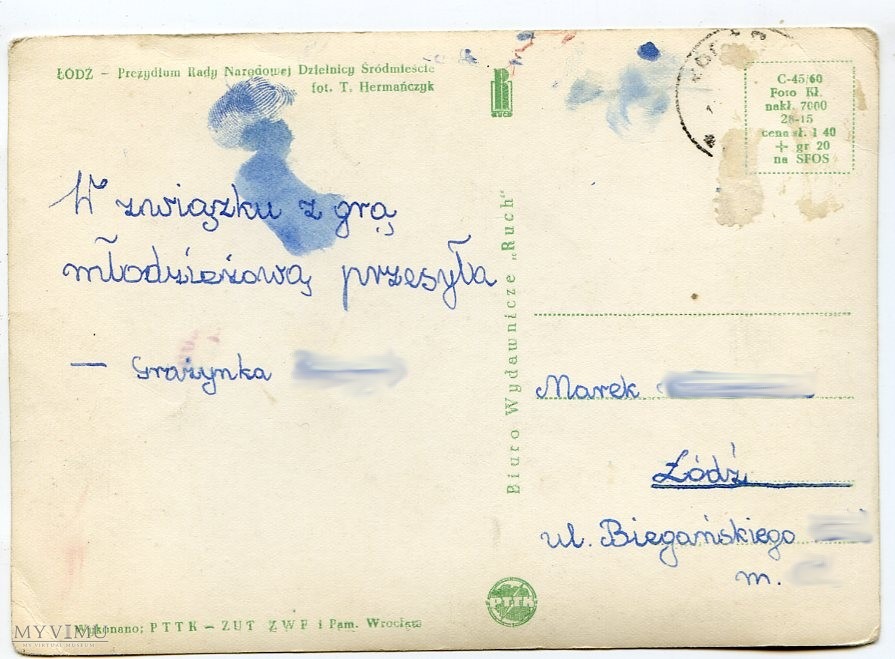 ŁÓDŹ – Prezydium Rady Narodowej Dzielnicy Śródmieście
fot. T. Hermańczyk
W związku z grą
młodzieżową przesyła
— Grażynka
RUCH
Biuro Wydawnicze „Ruch"
C-45/60
Foto Kl.
nakł. 7000
28-15
cena zł. 1 40
+ gr 20
na SFOS
Marek
Łódź
ul. Biegańskiego
m.
PTTK
Wykonano: PTTK – ZUT ZWF i Pam. Wrocław
MYVIMU
MY VIRTUAL MUSEUM